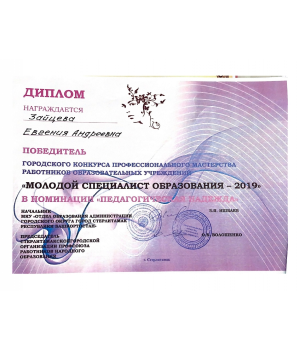 ДИПЛОМ
НАГРАЖДАЕТСЯ
Зайцева
Евгения Андреевна
ПОБЕДИТЕЛЬ
ГОРОДСКОГО КОНКУРСА ПРОФЕССИОНАЛЬНОГО МАСТЕРСТВА
РАБОТНИКОВ ОБРАЗОВАТЕЛЬНЫХ УЧРЕЖДЕНИЙ
«МОЛОДОЙ СПЕЦИАЛИСТ ОБРАЗОВАНИЯ – 2019»
В НОМИНАЦИИ «ПЕДАГОГИЧЕСКАЯ НАДЕЖДА»
НАЧАЛЬНИК
МКУ «ОТДЕЛ ОБРАЗОВАНИЯ АДМИНИСТРАЦИИ
ГОРОДСКОГО ОКРУГА ГОРОД СТЕРЛИТАМАК
РЕСПУБЛИКИ БАШКОРТОСТАН»
ПРЕДСЕДАТЕЛЬ
СТЕРЛИТАМАКСКОЙ ГОРОДСКОЙ
ОРГАНИЗАЦИИ ПРОФСОЮЗА
РАБОТНИКОВ НАРОДНОГО
ОБРАЗОВАНИЯ
г. Стерлитамак